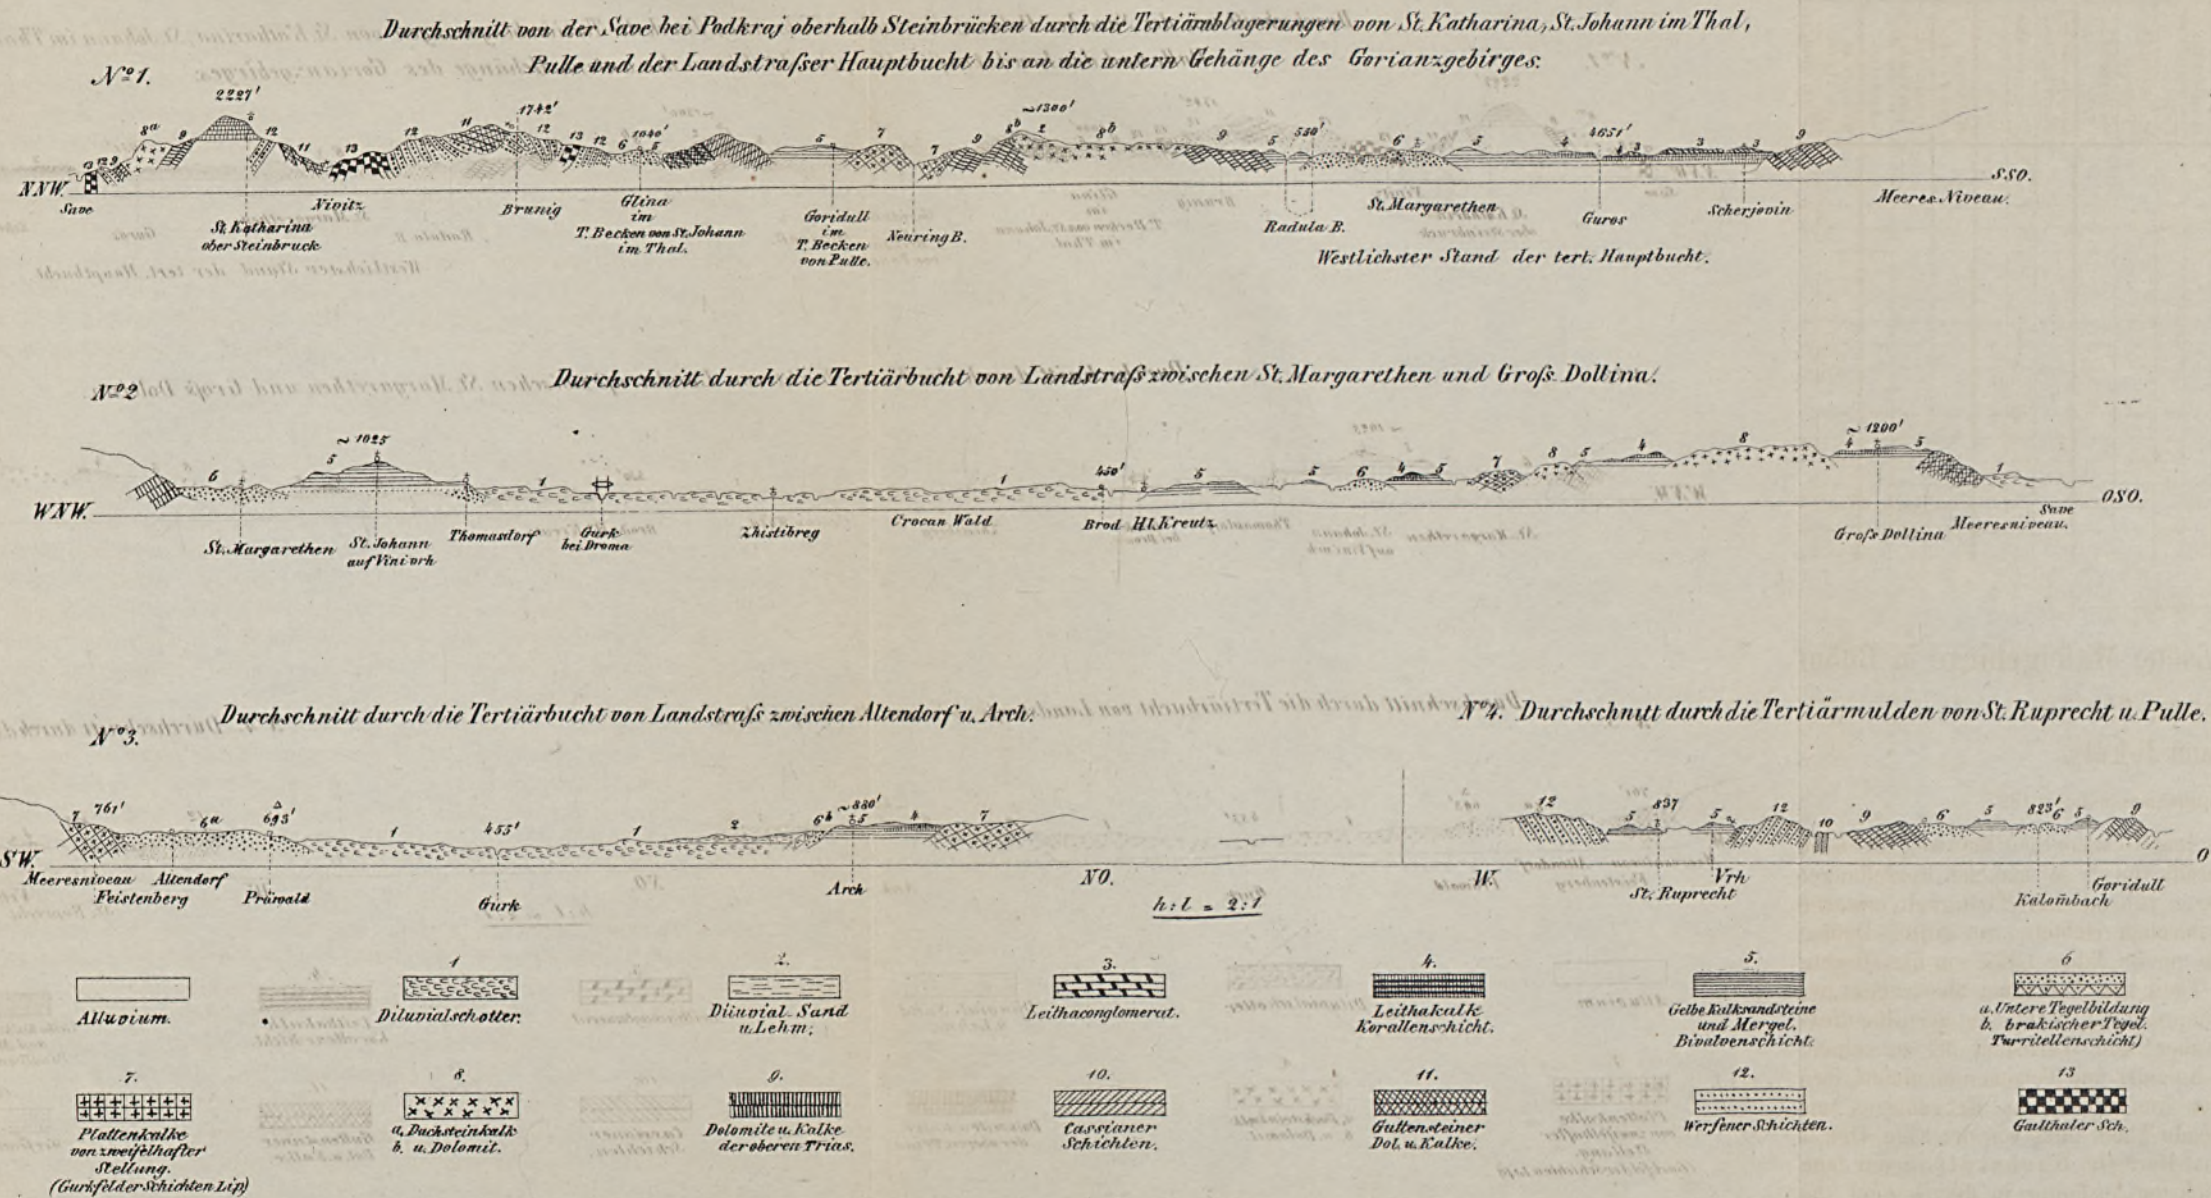 Durchschnitt von der Save bei Podkraj oberhalb Steinbrücken durch die Tertiärablagerungen von St. Katharina, St. Johann im Thal,
Pulle und der Landstraſser Hauptbucht bis an die untern Gehänge des Gorianzgebirges.
Nº 1.
2227' 1742' ~1300'
8a 9 12 11 13 12 11 12 13 12 6 1040' 5 5 7 7 9 8b 2 8b 9 5 550' 6 5 4 4651' 4 3 3 3 9
13 12 9
NNW. SSO.
Save Nivitz Brunig Glina Goridull Neuring B. St. Margarethen Guros Scherjovin Meeres Niveau.
St. Katharina im im Radula B.
ober Steinbruck T. Becken von St. Johann T. Becken
im Thal. von Pulle.
Westlichster Stand der tert. Hauptbucht.
Nº 2
Durchschnitt durch die Tertiärbucht von Landstraſs zwischen St. Margarethen und Groſs Dollina.
~1025 ~1200'
6 5 1 1 450' 5 5 6 4 5 7 8 5 4 8 4 5 1
WNW. OSO.
St. Margarethen St. Johann Thomasdorf Gurk Zhistibreg Crocan Wald Brod Hl. Kreutz Groſs Dollina Save
auf Vini vrh bei Droma Meeresniveau.
Nº 3.
Durchschnitt durch die Tertiärbucht von Landstraſs zwischen Altendorf u. Arch.
7 761' 6a 693' 1 455' 1 2 6b ~880' 5 4 7
SW. NO.
Meeresniveau Altendorf Arch
Feistenberg Präwald Gurk
h : l = 2 : 1
Nº 4. Durchschnitt durch die Tertiärmulden von St. Ruprecht u. Pulle.
12 5 837 5 12 10 9 6 5 823' 6 5 9
W. O
St. Ruprecht Vrh Goridull
Kalombach
Alluvium.
1
Diluvialschotter.
2.
Diluvial Sand
u. Lehm.
3.
Leithaconglomerat.
4.
Leithakalk
Korallenschicht.
5.
Gelbe Kalksandsteine
und Mergel.
Bivalvenschicht.
6
a. Untere Tegelbildung
b. brakischer Tegel.
Turritellenschicht)
7.
Plattenkalke
von zweifelhafter
Stellung.
(Gurkfelder Schichten Lip)
8.
a. Dachsteinkalk
b. u. Dolomit.
9.
Dolomite u. Kalke
der oberen Trias.
10.
Cassianer
Schichten.
11.
Guttensteiner
Dol. u. Kalke.
12.
Werfener Schichten.
13
Gailthaler Sch.